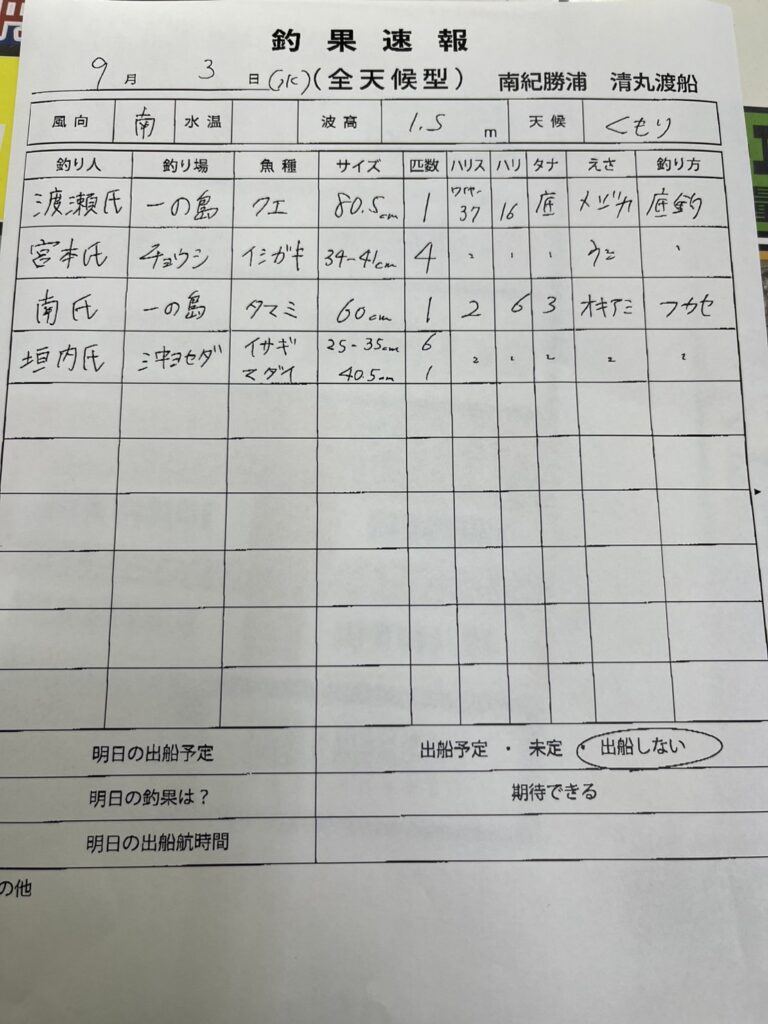 釣果速報
9月 3日(水)(全天候型) 南紀勝浦 清丸渡船
風向 南 水温 波高 1.5m 天候 くもり
釣り人 釣り場 魚種 サイズ 匹数 ハリス ハリ タナ えさ 釣り方
渡瀬氏 一の島 クエ 80.5cm 1 ワイヤー37 16 底 メジカ 底釣
宮本氏 チョウシ イシガキ 34-41cm 4 〃 〃 〃 ウニ 〃
南氏 一の島 タマミ 60cm 1 2 6 3 オキアミ フカセ
垣内氏 イサギ 25-35cm 6 〃 〃 〃 〃 〃
マダイ 40.5cm 1
明日の出船予定 出船予定 ・ 未定 ・ 出船しない
明日の釣果は? 期待できる
明日の出船航時間
の他